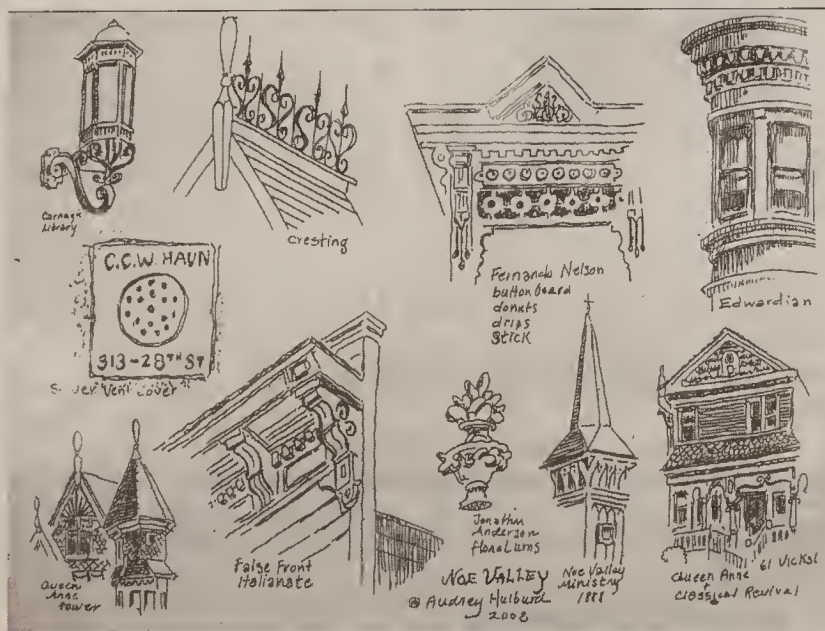 Carnegie
Library
Cresting
Fernando Nelson
button board
donuts
drips
Stick
Edwardian
C.C.W. HAUN
313-28TH ST
Sewer Vent Cover
Queen
Anne
tower
False Front
Italianate
Jonathan
Anderson
floral urns
NOE VALLEY
© Audrey Hulburd
2008
Noe Valley
Ministry
1888
61 Vicksb
Queen Anne
Classical Revival